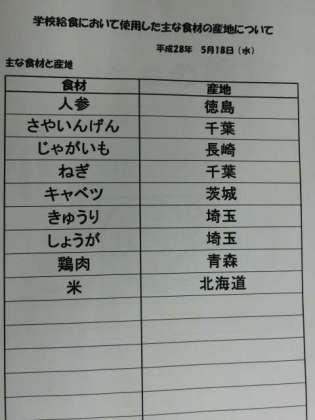 学校給食において使用した主な食材の産地について
平成28年　5月18日（水）
主な食材と産地
食材　産地
人参　徳島
さやいんげん　千葉
じゃがいも　長崎
ねぎ　千葉
キャベツ　茨城
きゅうり　埼玉
しょうが　埼玉
鶏肉　青森
米　北海道